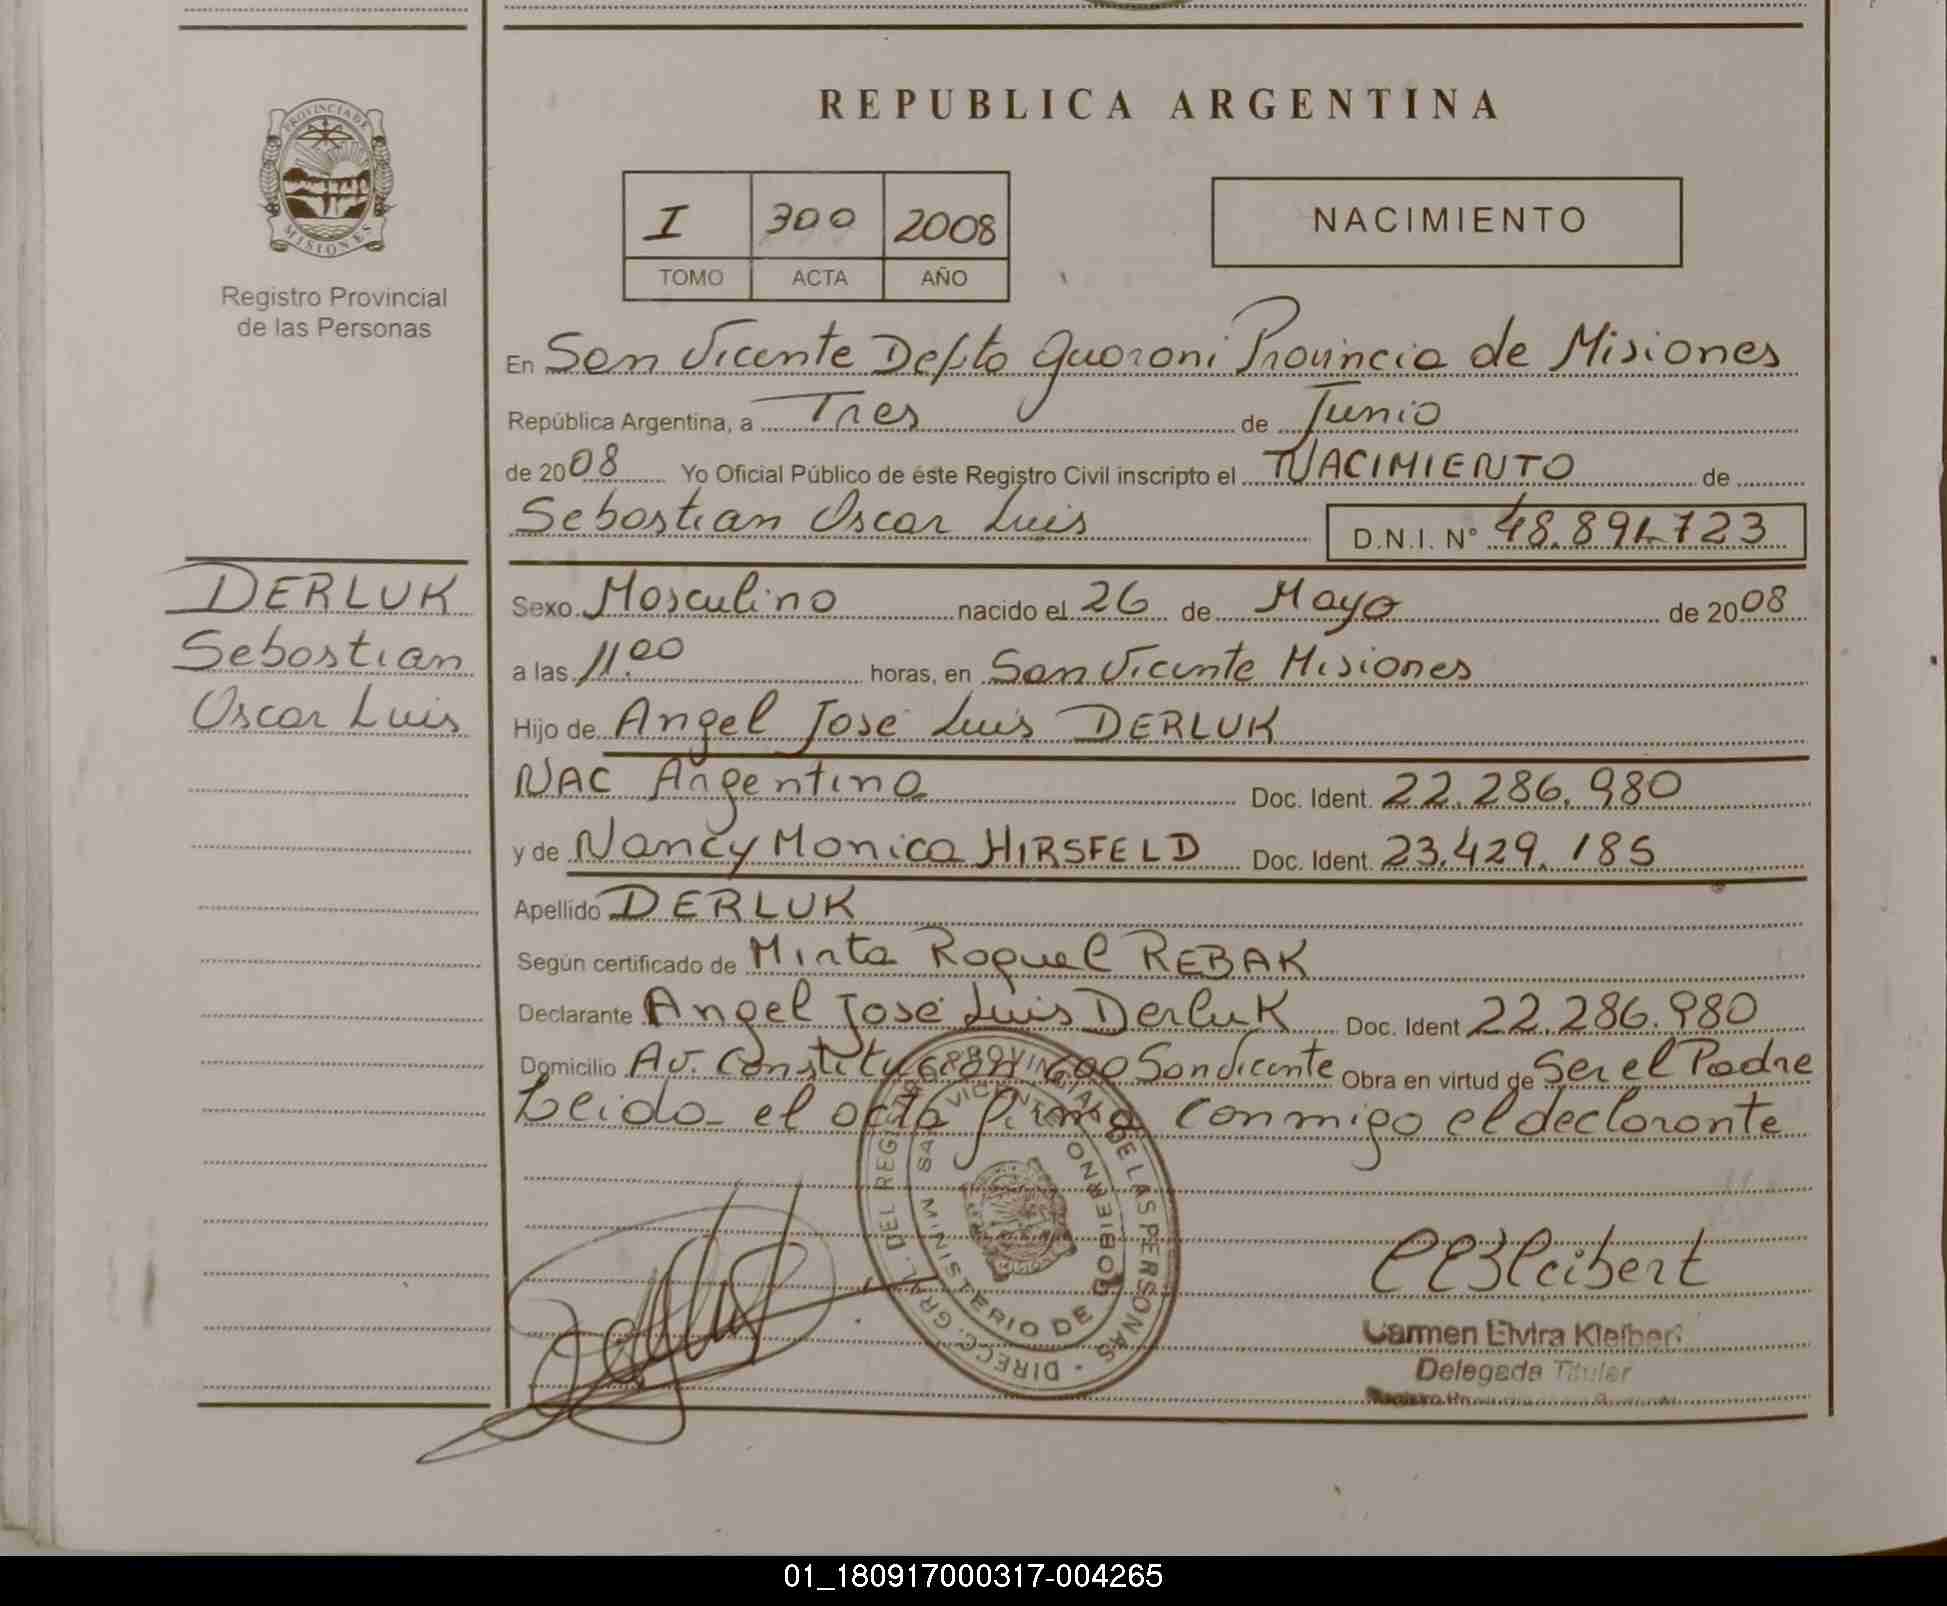 REPUBLICA ARGENTINA
PROVINCIA DE MISIONES
Registro Provincial
de las Personas
I 300 2008
TOMO ACTA AÑO
NACIMIENTO
En San Vicente Depto Guarani Provincia de Misiones
República Argentina, a Tres de Junio
de 2008 Yo Oficial Público de éste Registro Civil inscripto el NACIMIENTO de
Sebastian Oscar Luis D.N.I. N° 48.891.723
DERLUK
Sebastian
Oscar Luis
Sexo Masculino nacido el 26 de Mayo de 2008
a las 11.00 horas, en San Vicente Misiones
Hijo de Angel Jose Luis DERLUK
NAC Argentina Doc. Ident. 22.286.980
y de Nancy Monica HIRSFELD Doc. Ident. 23.429.185
Apellido DERLUK
Según certificado de Mirta Raquel REBAK
Declarante Angel José Luis Derluk Doc. Ident 22.286.980
Domicilio Av. Constitucion 600 San Vicente Obra en virtud de Ser el Padre
Leida el acta firma conmigo el declarante
DIRECC. GRAL. DEL REG. PROVINCIAL DE LAS PERSONAS
SAN VICENTE
MINISTERIO DE GOBIERNO
CEKleibert
Carmen Elvira Kleibert
Delegada Titular
01_180917000317-004265